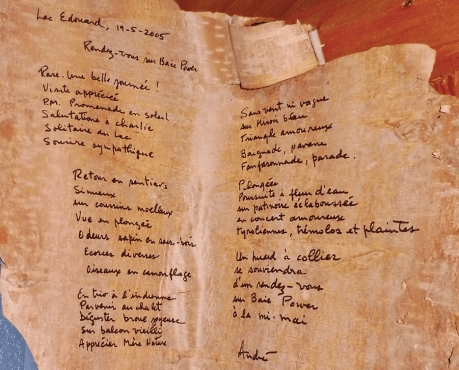 Lac Edouard, 19-5-2005
Rendez-vous sur Baie Power
Rare. Une belle journée !
Visite appréciée
P.M. Promenade en soleil
Salutations à charlie
Solitaire du lac
Sourire sympathique
Retour en sentiers
Sinueux
sur coussins moelleux
Vue en plongée
Odeurs sapin en sous-bois
Ecorces diverses
Oiseaux en camouflage
En trio à l'indienne
Parvenir au chalet
Déguster broue joyeuse
Sur balcon vieilli
Apprécier Mère Nature
Sans vent ni vague
sur Miroir bleu
Triangle amoureux
Baignade, pavane
Fanfaronnade, parade.
Plongées
Poursuite à fleur d'eau
sur patinoire éclaboussée
en concert amoureux
tyroliennes, trémolos et plaintes
Un huard à collier
se souviendra
d'un rendez-vous
sur Baie Power
à la mi-mai
André